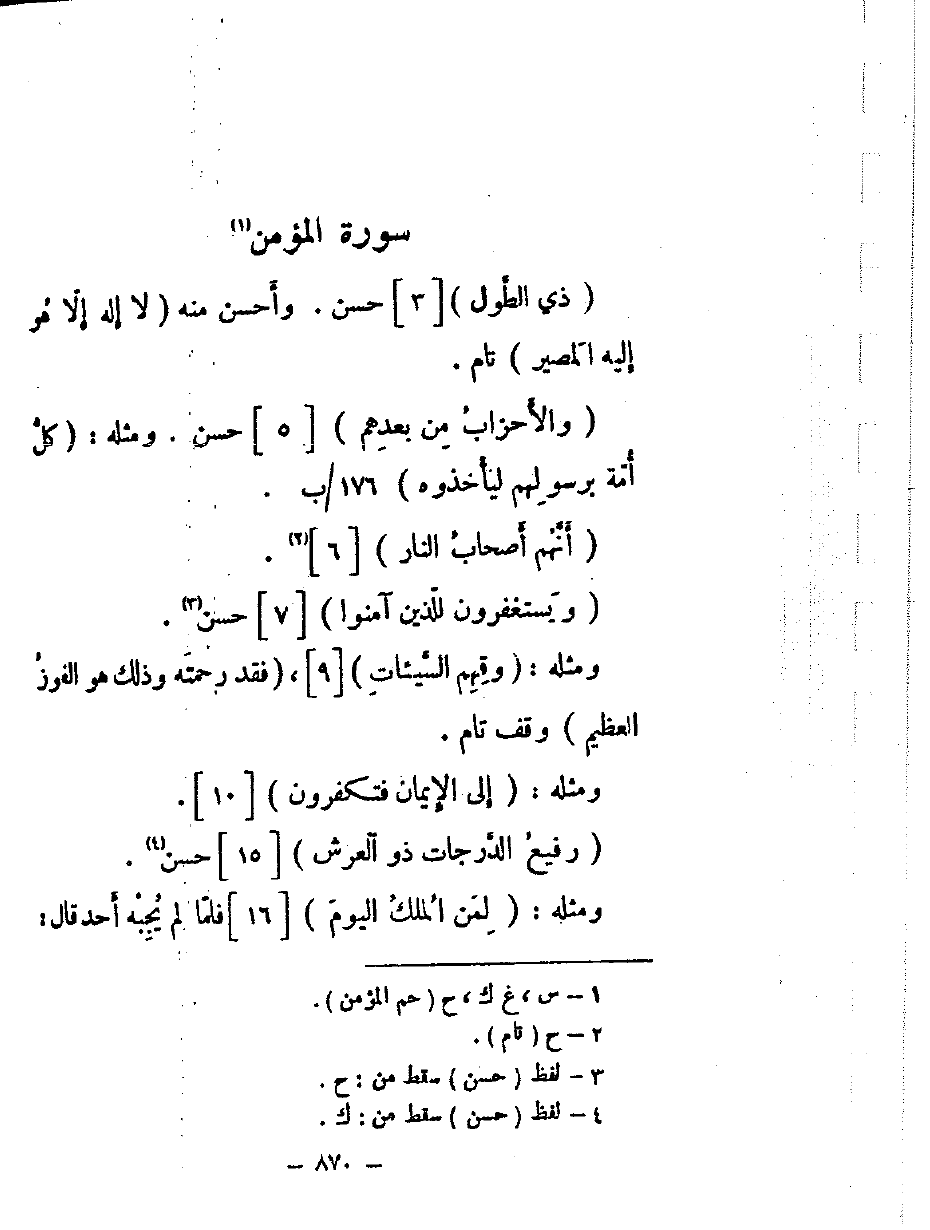 سورة المؤمن(١)
( ذي الطَّول )[ ٣ ] حسن . وأَحسن منه ( لا إله إلّا هُو
إليه المصير ) تام .
( والأَحزابُ مِن بعدِهِم ) [ ٥ ] حسن . ومثله : ( كلُّ
أُمّة برسولِهِم ليأْخذوه ) ١٧٦/ب .
( أَنَّهُم أَصحابُ النار ) [ ٦ ](٢) .
( ويَستغفرون للّذين آمنوا ) [ ٧ ] حسن(٣) .
ومثله : ( وقِهِم السَّيئاتِ )[ ٩ ] ، ( فقد رحمتَه وذلك هو الفوزُ
العظيم ) وقف تام .
ومثله : ( إلى الإيمان فتكفرون ) [ ١٠ ] .
( رفيعُ الدَّرجات ذو العرش ) [ ١٥ ] حسن(٤) .
ومثله : ( لِمَن الملكُ اليومَ ) [ ١٦ ] فلمّا لم يُجِبْه أَحد قال :
١ – س ، غ ك ، ح ( حم المؤمن ) .
٢ – ح ( تام ) .
٣ – لفظ ( حسن ) سقط من : ح .
٤ – لفظ ( حسن ) سقط من : ك .
– ٨٧٠ –